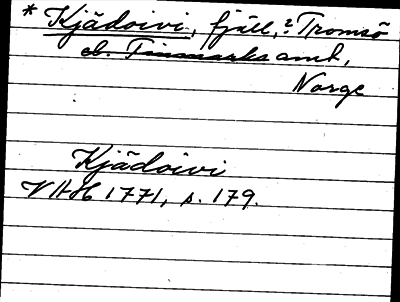 * Kjädoivi, fjäll, ? Tromsö
el. Finmarks amt,
Norge
Kjädoivi
VHH 1771, s. 179.